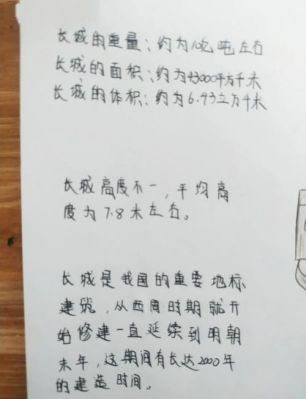 长城的重量：约为10亿吨左右
长城的面积：约为43000平方千米
长城的体积：约为6.93立方千米
长城高度不一，平均高
度为7.8米左右。
长城是我国的重要地标
建筑，从西周时期就开
始修建一直延续到明朝
末年，这期间有长达2000年
的建造时间。